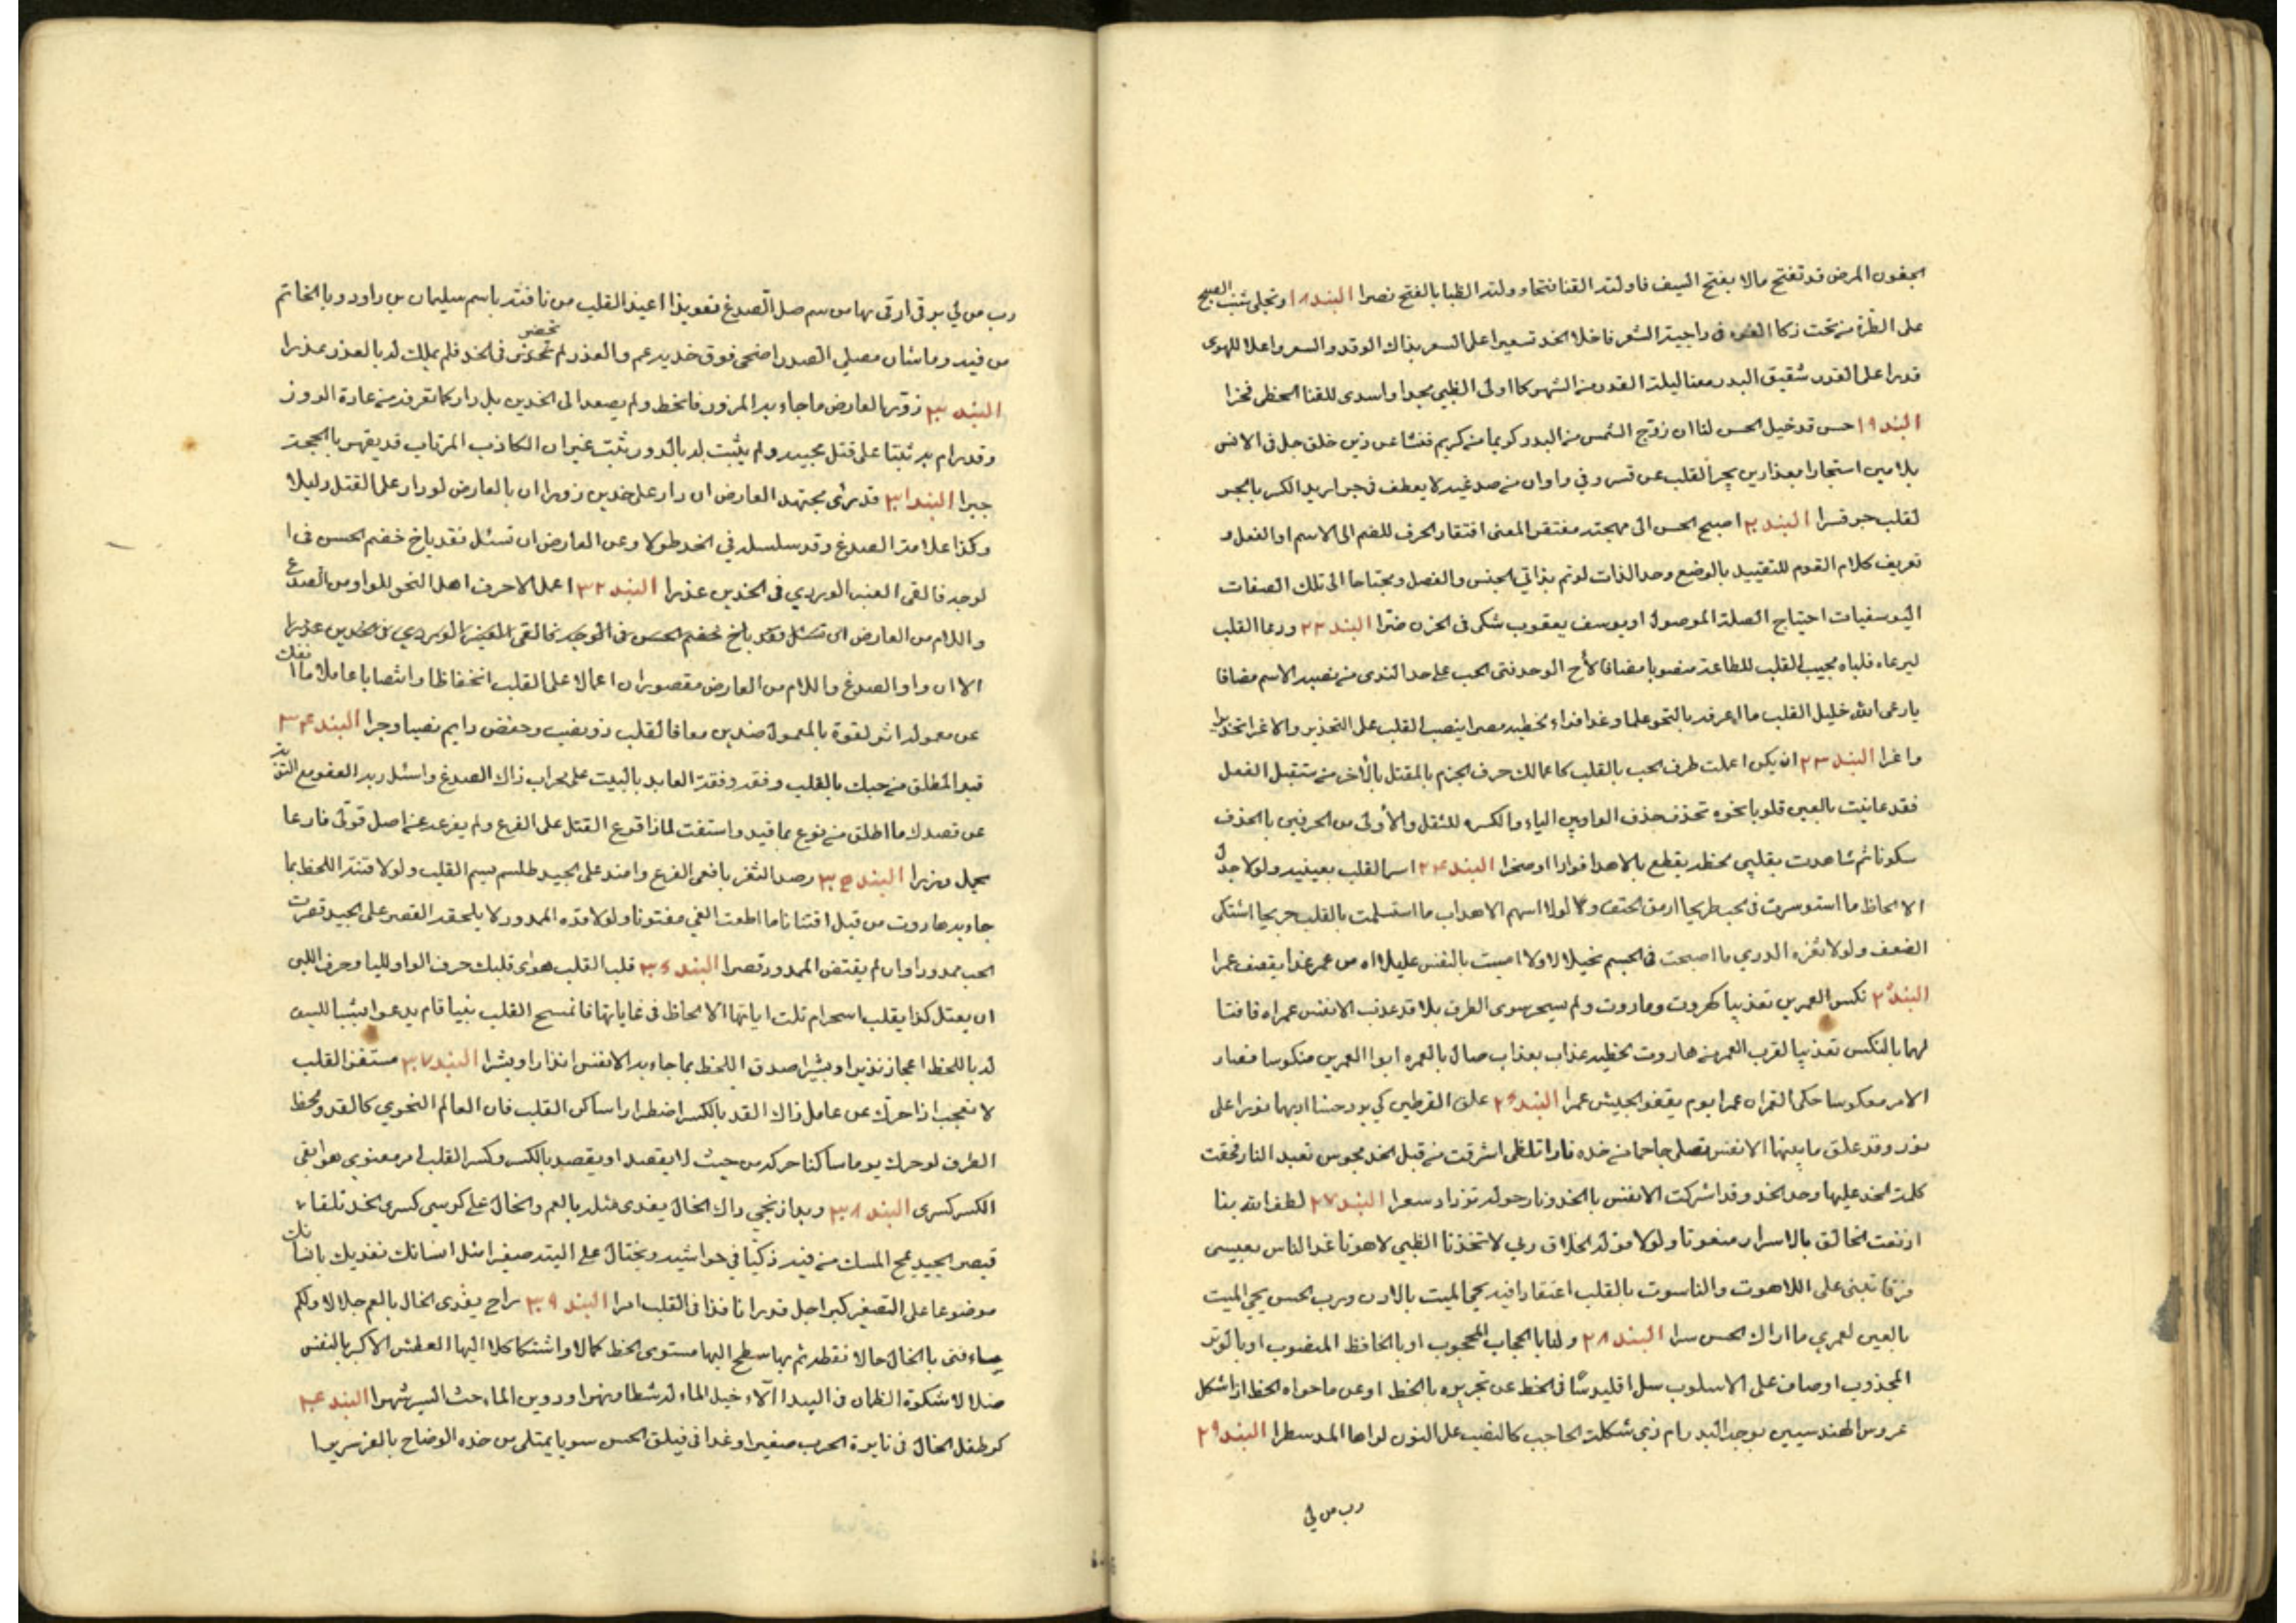 الجفون المرض قد تفتح مالا يفتح السيف فاولته القنا فتحا وولته الظبا بالفتح نصرا البند ١٨ وتجلى شنب الصبح
على الطرة من تحت زكا الغره في داجية الشعر فاخلا الخد تسعيرا على السعر بذاك الوقد والسعر واعلا للهوى
قدرا على القدر شقيق البدر معنا ليلة القدر من الشهر كما اولى الظبي جيدا واسدى للقنا الخطر فخرا
البند ١٩ حسن قد خيل الحسن لنا ان زوج الشمس من البدر كريما من كريم فنشا عن ذين خلق جل في الانس
بلا مين استجارا بعذارين يجر القلب عن قسر وفي واوان من صدغيه لا يعطف في جوار يد الكسر بالجبر
لقلب جر قسرا البند ٢٠ اصبح الحسن الى مهجته مفتقر المعنى افتقار الحرف للضم الى الاسم او الفعل و
تعريف كلام القوم للتقييد بالوضع وحد الذات لو تم بذاتي الجنس والفصل ومحتاجا الى تلك الصفات
اليوسفيات احتياج الصلة الموصول او يوسف يعقوب شكى في الحزن ضرا البند ٢٢ ودعا القلب
ليرعاه فلباه مجيب القلب للطاعة منصوبا مضافا لأخ الوجد فتى الحب على حد الندى من نصبه الاسم مضافا
يا رعى الله خليل القلب ما اعرفه بالنحو علما وغدا فداء لخطيه مصرا ينصب القلب على التحذير والاغرا تحذيرا
واغرا البند ٢٣ ان يكن اعملت طرف الحب بالقلب كاعمالك حرف الجزم بالمعتل بالأخر من مستقبل الفعل
فقد عاينت بالعين قلوبا نحوه تحذف حذف الواو بين الياء والكسره للثقل والأولى من الحرفين بالحذف
سكونا ثم شاهدت بقلبي لحظه يقطع بالاهدا فوادا او صخرا البند ٢٤ اسرا لقلب بعينيه ولولا جدل
الالحاظ ما استوسرت في الحب طريحا ارمق الحتف ولا لولا اسهم الاهداب ما استسلمت بالقلب جريحا اشتكى
الضعف ولولا ثغره الدري ما اصبحت في الجسم نحيلا لا ولا امسيت بالنفس عليلا اه من عمر غدا يقصف عمرا
البند ٢٥ نكس العمرين تعذيبا كهروت وماروت ولم يسحر سوى الطرف بلا قد عذب الانفس عمراه فافتا
لهما بالنكس تعذيبا لقرب العمر من هاروت لحظيه عذاب بعذاب صال بالعمره ابوا العمرين منكوسا فصار
الامر معكوسا حكى القمراه عمرا يوم يقفو الجيش عمرا البند ٢٦ علق القرطين كي يودحسنا اديهما نورا على
نور وقد علق ما بينهما الانفس تصلى جاحما من خده نارا تلظى اشرقت من قبل الخد مجوس تعبد النار فحقت
كلمة الخد عليها وحد الخد وقد اشركت الانفس بالخد ونار حوله تزداد سعرا البند ٢٧ لطف الله بنا
اذ نعت الخالق بالاسرار منعوتا ولولا قوله الخلاق ربي لاتخذنا الظبي لاهوتا غدا الناس بعيسى
فرقا تبنى على اللاهوت والناسوت بالقلب اعتقادا فيه يحي الميت بالاذن ورب الحسن يحي الميت
بالعين لعمري ما اراك الحسن سرا البند ٢٨ ولنا بالحجاب المحجوب او بالحافظ المنصوب او بالوتر
المجذوب اوصاف على الاسلوب سل اقليدسا في الخط عن تجريده بالخط او عن ما حواه الخط اذ اشكل
عروس الهندسيين بوجه البدر ام ذي شكلة الحاجب كالنصب على النون لواها المد سطرا البند ٢٩
رب من لي
رب من لي برقى ارقى بها من سم صل الصدغ تعويذا اعيذ القلب من نافثه باسم سليمان بن داود وبالخاتم
من فيه وما شان مصلى الصدر اضحى فوق خديه عم والعذر لم تخضر في الخد فلم يملك له بالعذر عذرا
البند ٣٠ زور بالعارض ما جاء به المزور فانحط ولم يصعد الى الخدين بل دار كما تعرفه من عادة الدور
وقد رام به ثبتا على قتل محبيه ولم يثبت له بالدور ثبت غير ان الكاذب المرتاب قد يقهر بالحجة
جبرا البند ٣١ قد يرى مجتهد العارض ان دار على خدين زورا ان بالعارض لو دار على القتل دليلا
وكذا علامة الصدغ وقد سلسله في الخد طولا وعن العارض ان تسئل فقد باخ خضم الحسن في ا
لوجه فالقى العنبر الوردي في الخدين عذرا البند ٣٢ اعمل الاحرف اهل النحو للواو من الصدغ
واللام من العارض
الا ان واو الصدغ واللام من العارض مقصوران اعمالا على القلب انخفاظا وانتصابا عاملا ما انفك
عن معموله اثر لقوة بالمعمول ضدين معا فالقلب ذو نصب وخفض دايم نصبا وجرا البند ٣٤
قيد المطلق من حبك بالقلب وفقه وفقة العابد بالبيت على محراب ذاك الصدغ واسئل ربه العفو مع التوبة
عن قصدك ما اطلق من نوع بما قيد واستفت لماذا قوع القتل على الفرع ولم يفرعه عن اصل قوتى فارعا
بجيل وبزبرا البند ٣٥ رصد الثغر بافعى الفرع وامتد على الجيد طلسم بسيم القلب ولولا فتنة اللحظ بما
جاء به هاروت من قبل افتتانا ما اطعت الغي مفتونا ولولا قده الممدود لا يلحقه القصر على الجيد قصرت
الحب ممدودا وان لم يقتض الممدود قصرا البند ٣٦ قلب القلب هواى قلبك حرف الواو لليا وحرف اللين
ان يعتل كذا يقلب اسحرام تلت اياتها الالحاظ في غاياتها فانمسح القلب نبيا قام يدعوا بينا للسن
له باللحظ اعجاز نذيرا وبشيرا صدق اللحظ بما جاء به الانفس انذارا وبشرا البند ٣٧ مستفز القلب
لا تعجب اذا حرك عن عامل ذاك القد بالكسر اضطرارا ساكن القلب فان العالم النحوي كالقد ولحظ
الطرف لو حرك يوما ساكنا حركه من حيث لا يقصد او يقصد بالكسر وكسر القلب امر معنوي هو ابقى
الكسر كسرى البند ٣٨ وبدا زنجي ذاك الخال يفدى مثله بالعم والخال على كرسي كسرى الخد تلقاء
قيصر الجيد يمج المسك من فيه زكيا في حواشيه ويختال على اليته صفيرا مثل انسانك نفديك بانسانك
موضوعا على التصغير كبر اجل قدرا نافذا في القلب امرا البند ٣٩ راح يفدى الخال بالعم جلالا ولكم
ساء فتى بالخال حالا نقطه ثم بها سطح البها مستوى الخط كمالا واشتكا كلا اليها العطش الاكبر بالنفس
ضلالا شكوة الظمان في البيدا الآء خيل الماء له شطا ونهرا ودوين الماء حث السير شهرا البند ٤٠
كم طفل الخال في نايرة الحرب صغيرا وغدا في فيلق الحسن سويا يمتلى من خده الوضاح بالعز سريرا